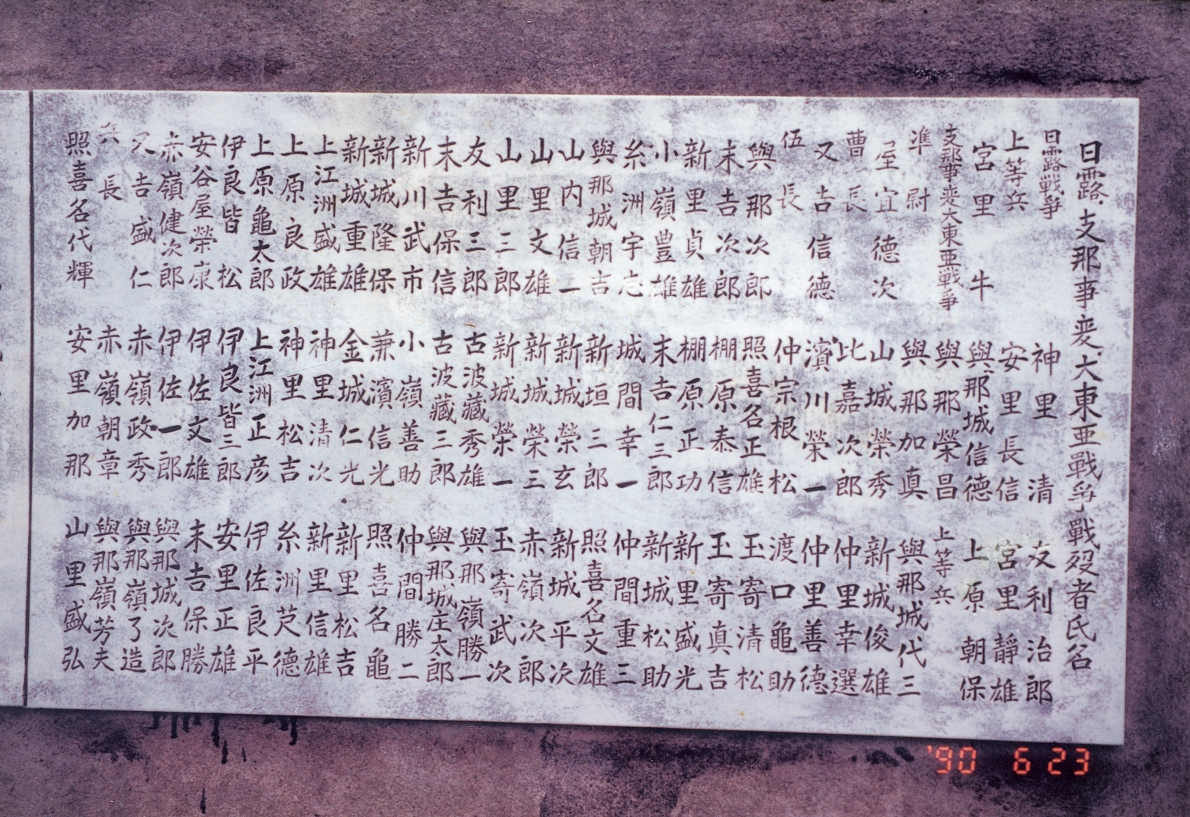 日露支那事変大東亜戰争戰歿者氏名
日露戰爭
上等兵
宮里牛
支那事変大東亜戰争
準尉
屋宜德次
曹長
又吉信德
伍長
與那次郎
末吉次郎
新里貞雄
小嶺豊雄
糸洲宇志
與那城朝吉
山内信一
山里文雄
山里三郎
友利三郎
末吉保信
新川武市
新城隆保
新城重雄
上江洲盛雄
上原良政
上原龜太郎
伊良皆松
安谷屋榮康
赤嶺健次郎
又吉盛仁
兵長
照喜名代輝
神里清
安里長信
與那城信德
與那榮昌
與那加真
山城榮秀
比嘉次郎
濱川榮一
仲宗根松
照喜名正雄
棚原泰信
棚原正功
末吉仁三郎
城間幸一
新垣三郎
新城榮玄
新城榮三
新城榮一
古波藏秀雄
古波藏三郎
小嶺善助
兼濱信光
金城仁光
神里清次
神里松吉
上江洲正彦
伊良皆三郎
伊佐文雄
伊佐一郎
赤嶺政秀
赤嶺朝章
安里加那
友利治郎
宮里靜雄
上原朝保
上等兵
與那城代三
新城俊雄
仲里幸選
仲里善德
渡口龜助
玉寄清松
玉寄真吉
新里盛光
新城松助
仲間重三
照喜名文雄
新城平次
赤嶺次郎
玉寄武次
與那嶺勝一
與那城庄太郎
仲間勝二
照喜名龜
新里松吉
新里信雄
糸洲芡德
伊佐良平
安里正雄
末吉保勝
與那城次郎
與那嶺了造
與那嶺芳夫
山里盛弘
'90 6 23